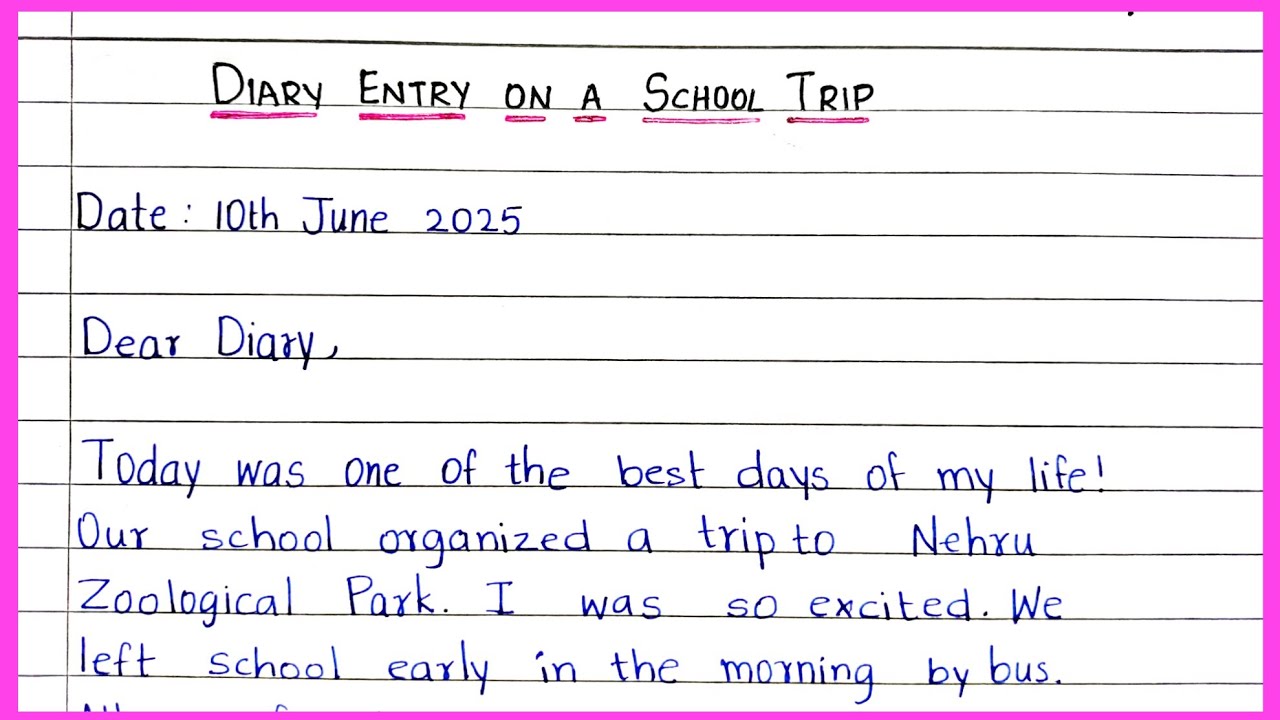 DIARY ENTRY ON A SCHOOL TRIP
Date: 10th June 2025
Dear Diary,
Today was one of the best days of my life!
Our school organized a trip to Nehru
Zoological Park. I was so excited. We
left school early in the morning by bus.